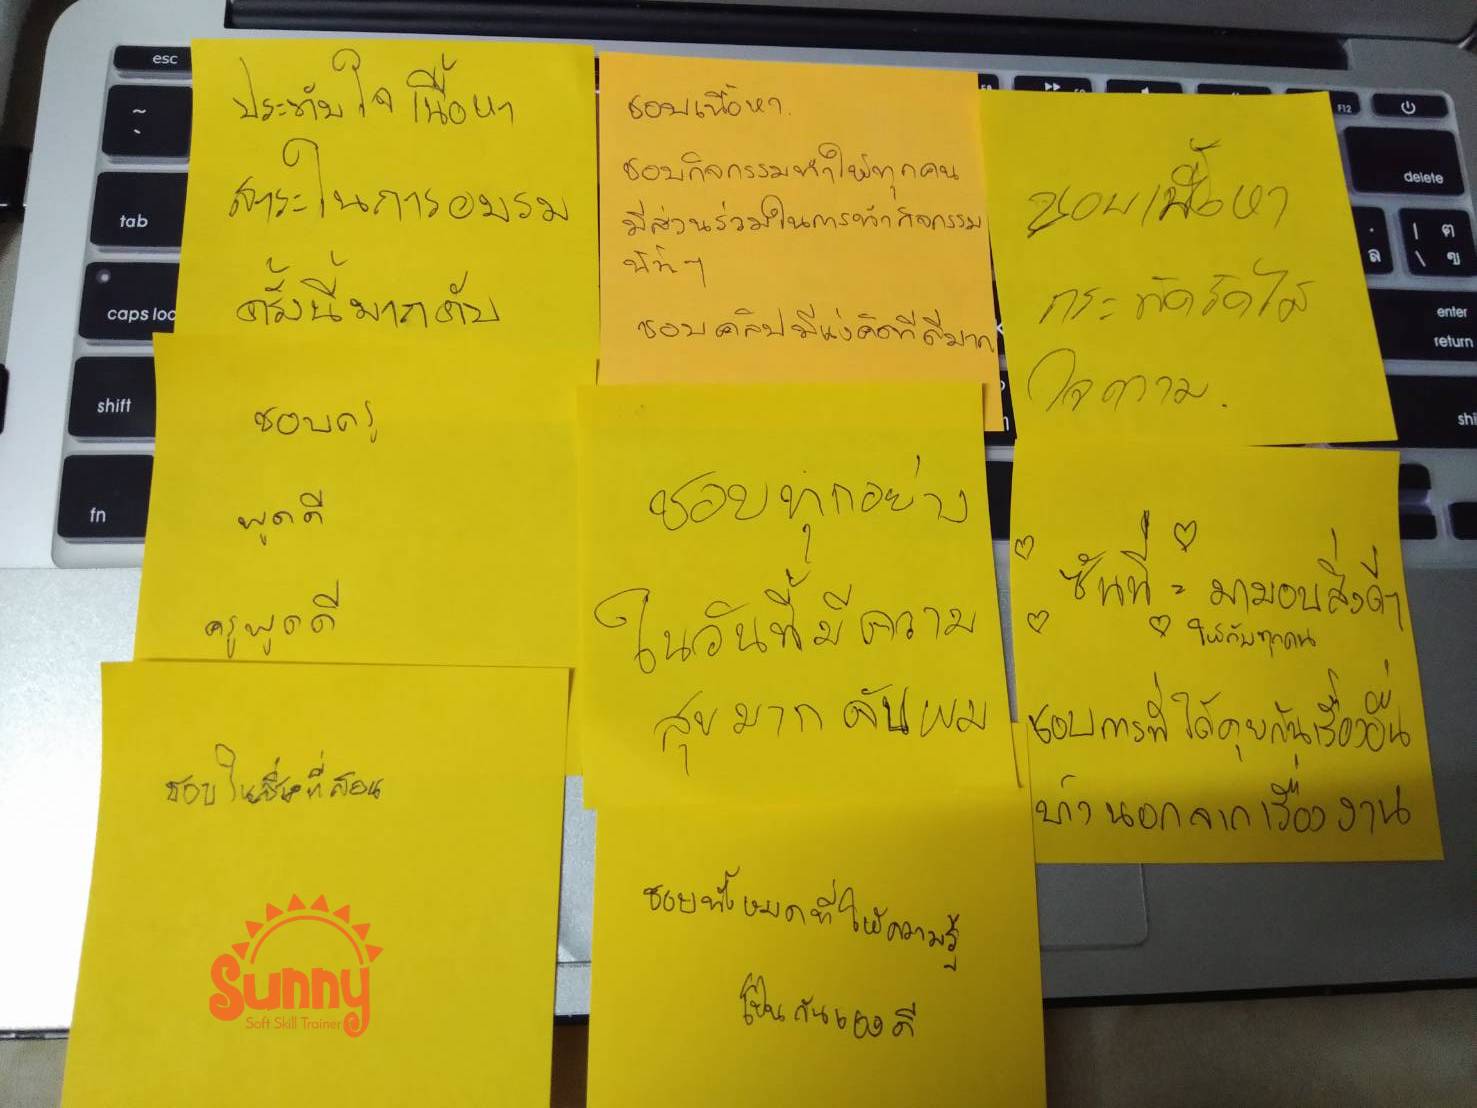 ประทับใจเนื้อหา
สาระในการอบรม
ครั้งนี้มากคับ
ชอบเนื้อหา.
ชอบกิจกรรมทำให้ทุกคน
มีส่วนร่วมในการทำกิจกรรม
ชอบคลิปมีแง่คิดที่ดีมาก
ชอบเนื้อหา
กระทัดรัดได้
ใจความ.
ชอบครู
พูดดี
ครูพูดดี
ชอบทุกอย่าง
ในวันนี้มีความ
สุขมาก คับผม
ซันนี่ = มามอบสิ่งดีๆ
ให้กับทุกคน
ชอบการที่ได้คุยกันเรื่องอื่น
บ้างนอกจากเรื่องงาน
ชอบในสิ่งที่สอน
ชอบทั้งหมดที่ให้ความรู้
เป็นกันเองดี
Sunny
Soft Skill Trainer
esc
~
`
tab
caps loc
shift
fn
F12
delete
enter
return
shi